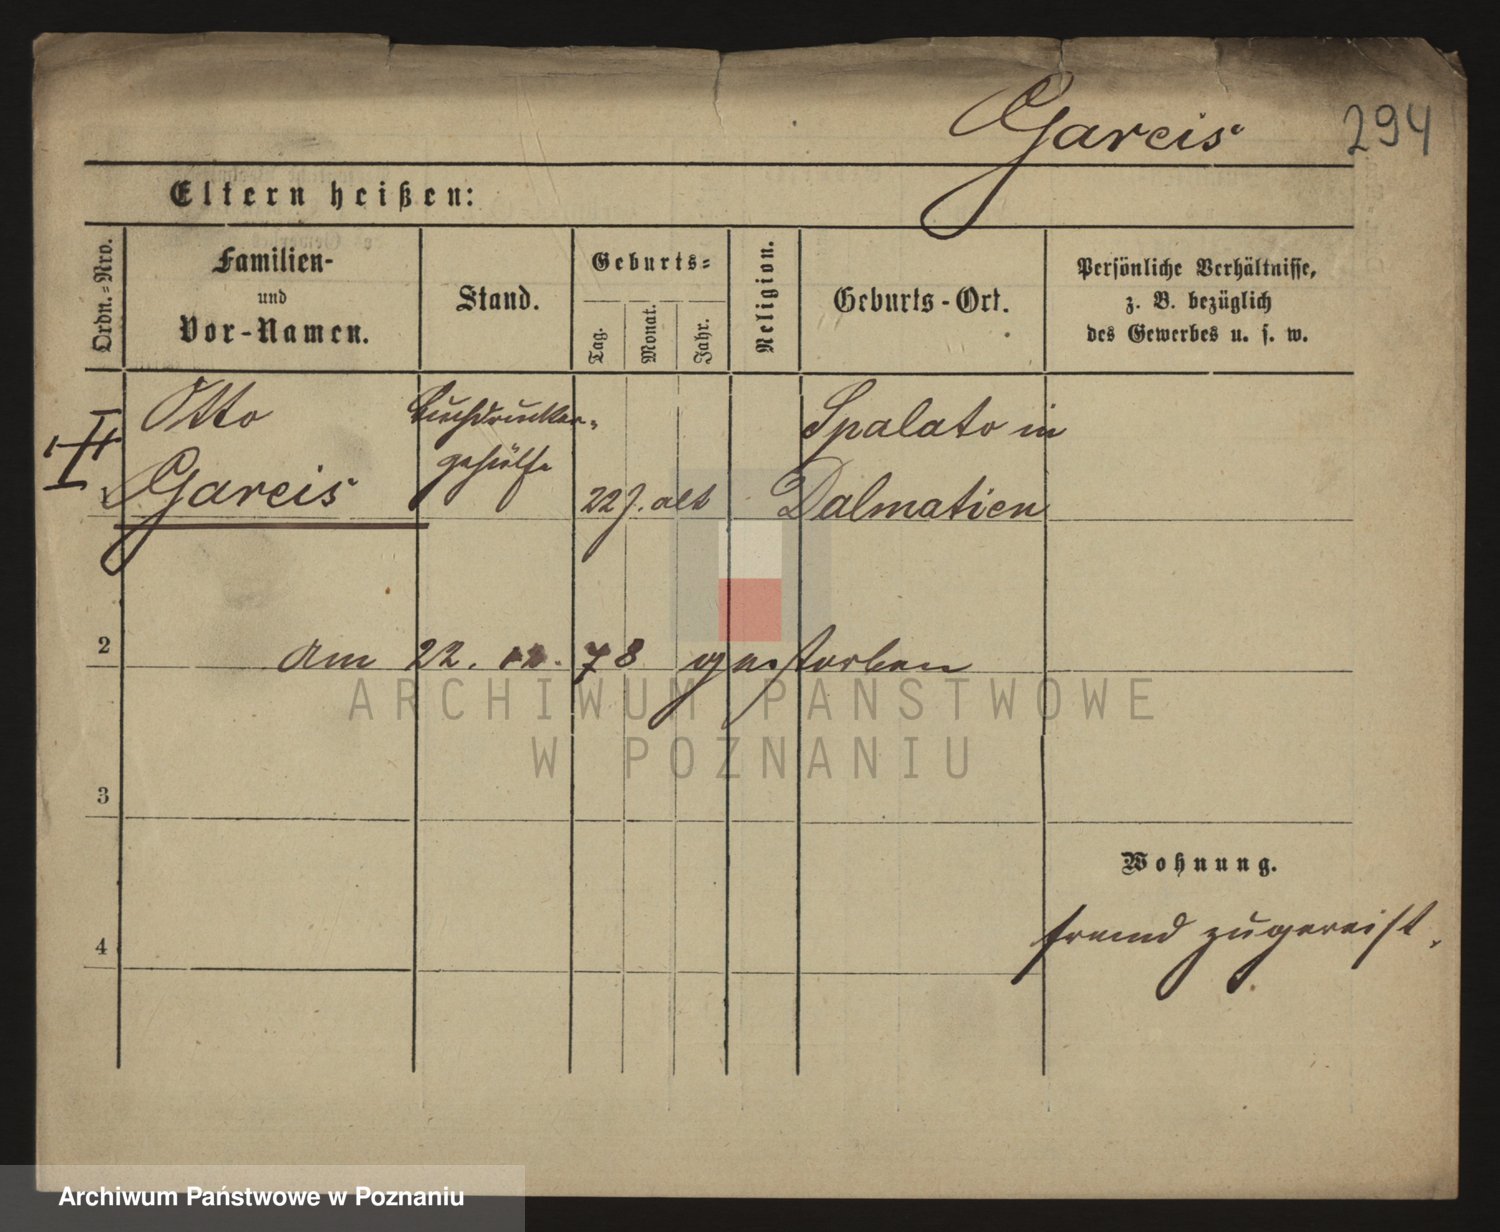 Gareis
294
Eltern heißen:
Ordn.=Nro.
Familien-
und
Vor-Namen.
Stand.
Geburts=
Tag.
Monat.
Jahr.
Religion.
Geburts-Ort.
Persönliche Verhältnisse,
z. B. bezüglich
des Gewerbes u. s. w.
Otto
Gareis
Buchdrucker-
gehülfe
22 J. alt
Spalato in
Dalmatien
1
2
am 22. 12. 78 gestorben
ARCHIWUM PAŃSTWOWE
W POZNANIU
3
Wohnung.
fremd zugereist.
4
Archiwum Państwowe w Poznaniu